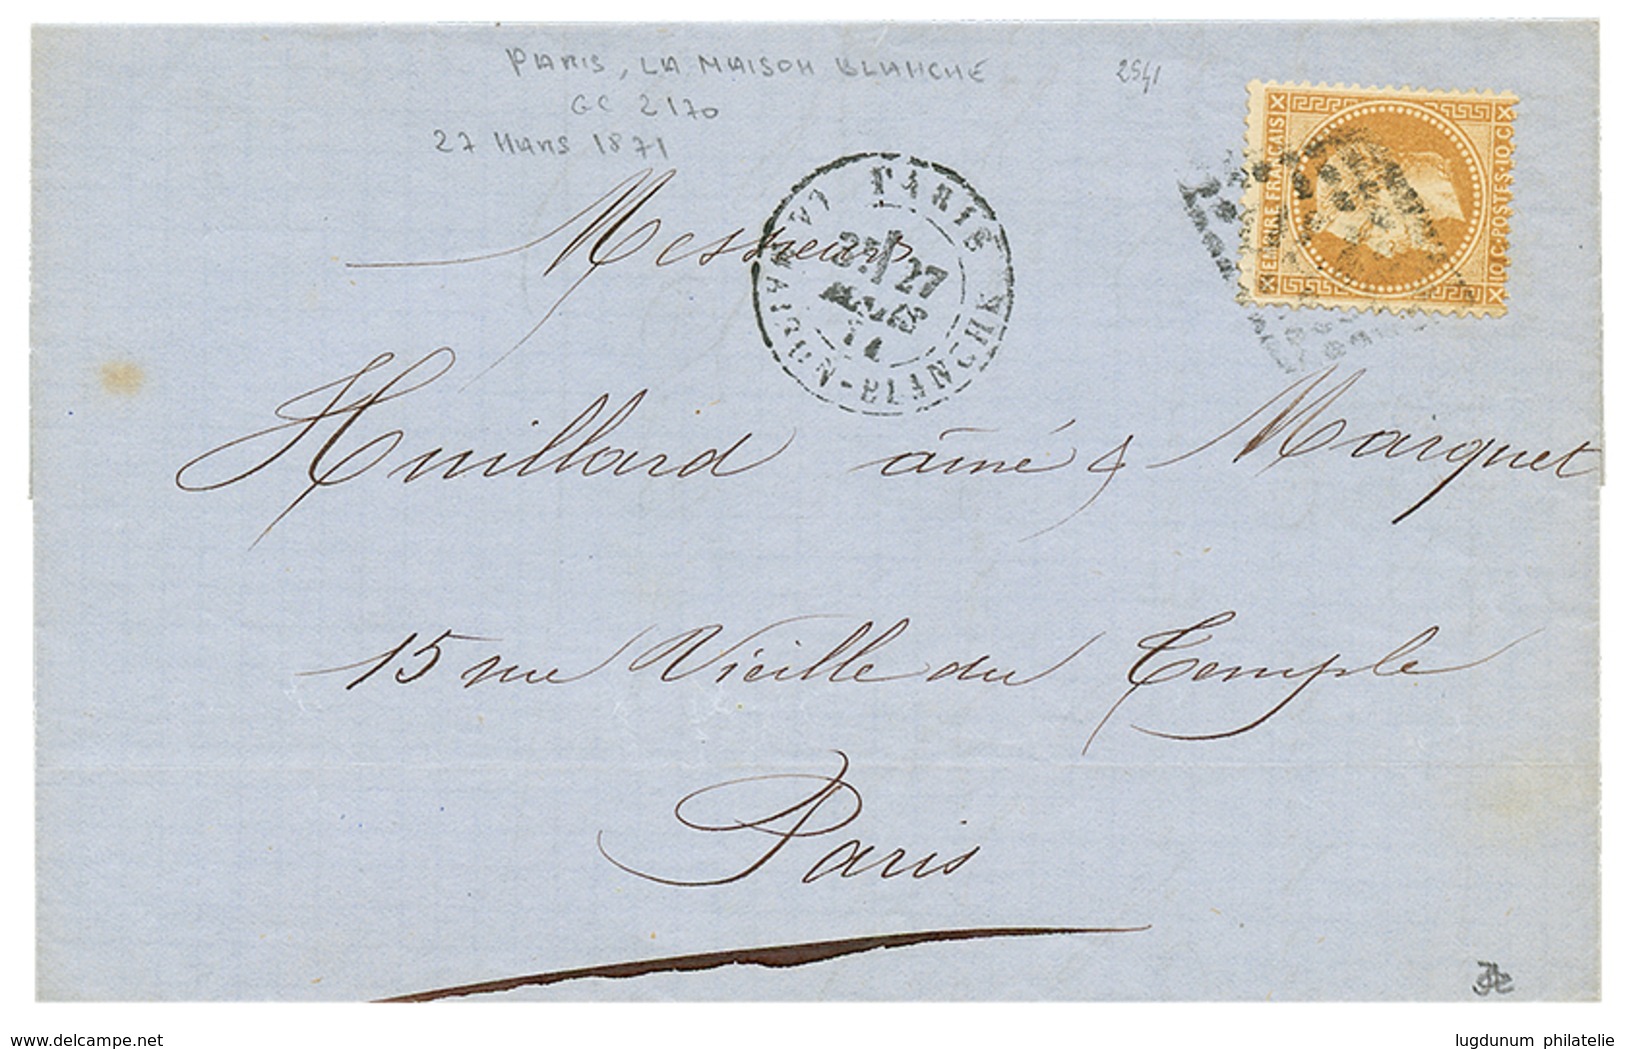 PARIS, LA MAISON BLANCHE
2541
GC 2170
27 Mars 1871
PARIS LA MAISON-BLANCHE
27
MARS
71
EMPIRE FRANÇAIS
10.C.POSTES.10.C
Messieurs
Huillard aîné & Marquet
15 rue Vieille du Temple
Paris
www.delcampe.net
lugdunum philatelie